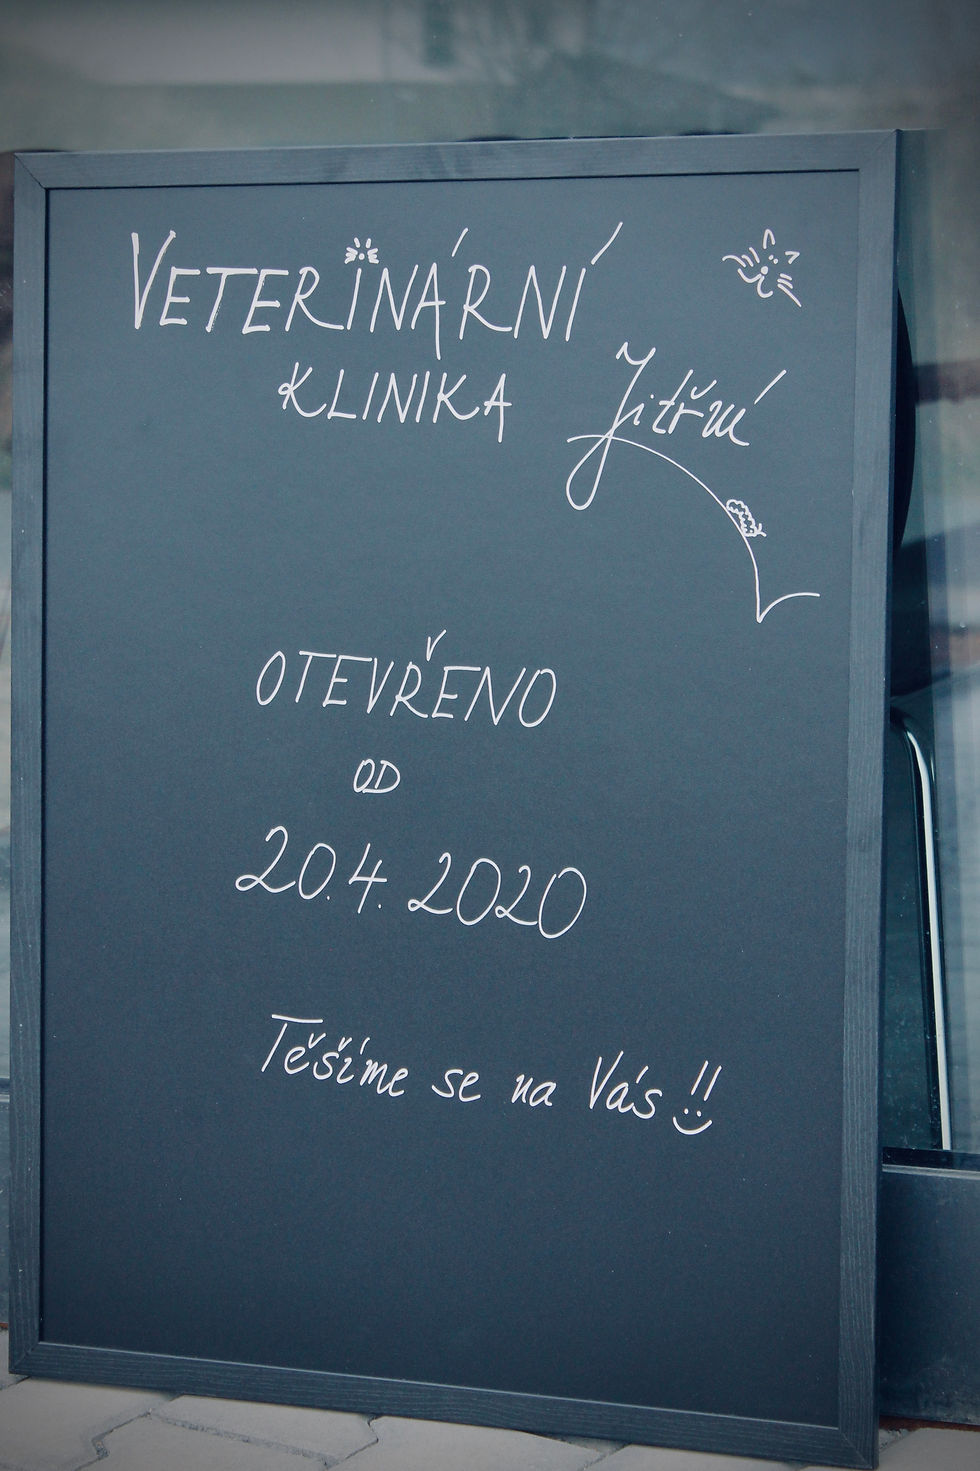 VETERINÁRNÍ
KLINIKA Jitřní
OTEVŘENO
OD
20.4.2020
Těšíme se na Vás!!